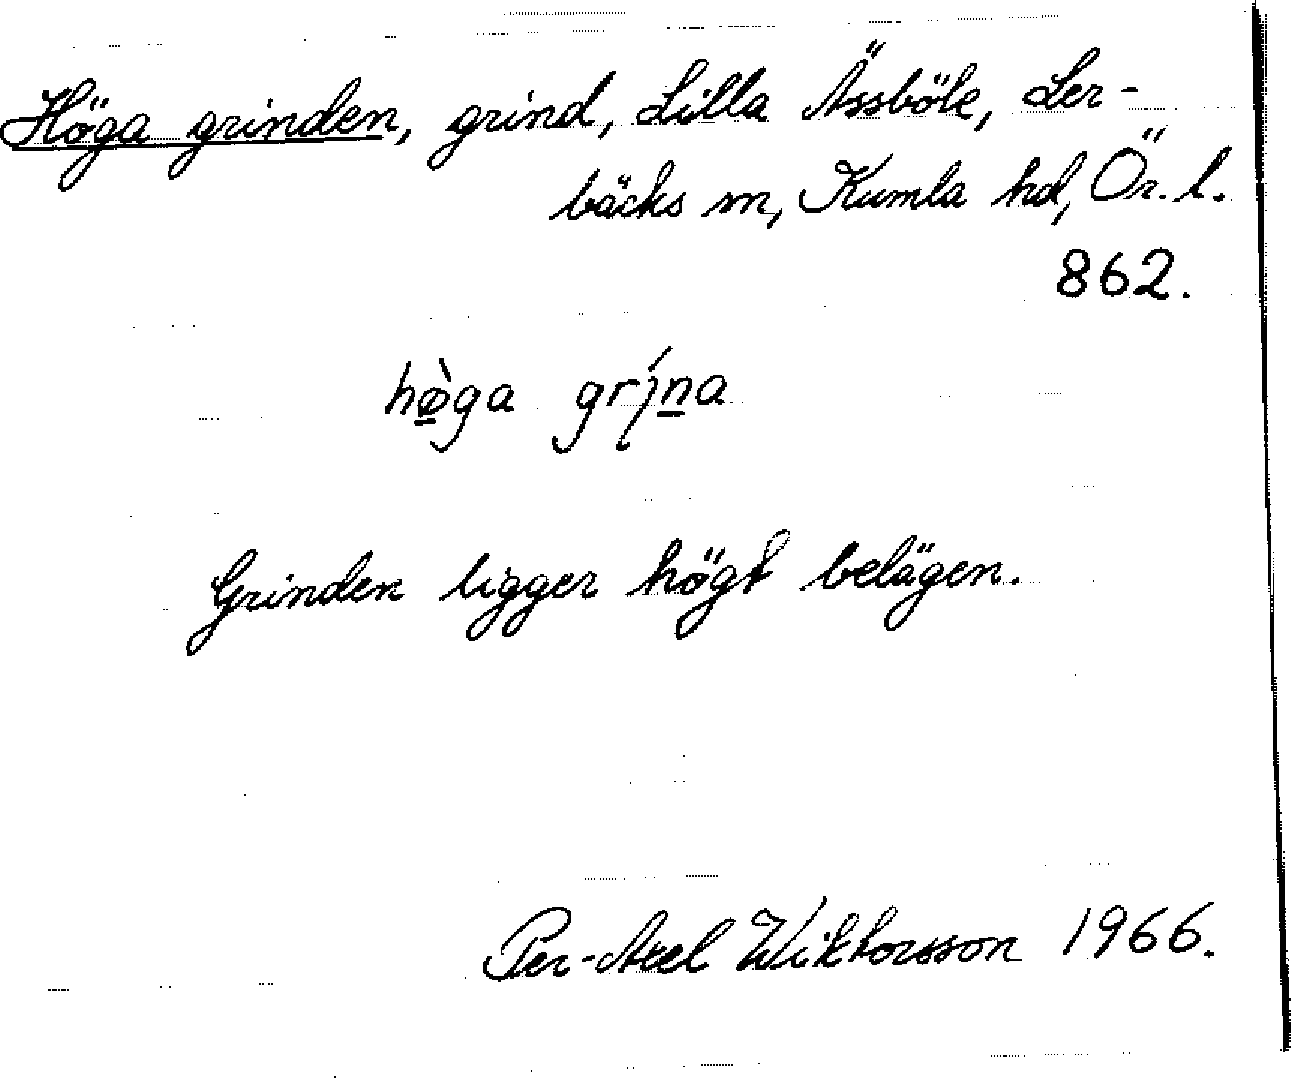 Höga grinden, grind, Lilla Ässböle, Ler-
bäcks sn, Kumla hd, Ör. l.
862.
hø̠̀ga grı̡́n̠a
Grinden ligger högt belägen.
Per-Axel Wiktorsson 1966.